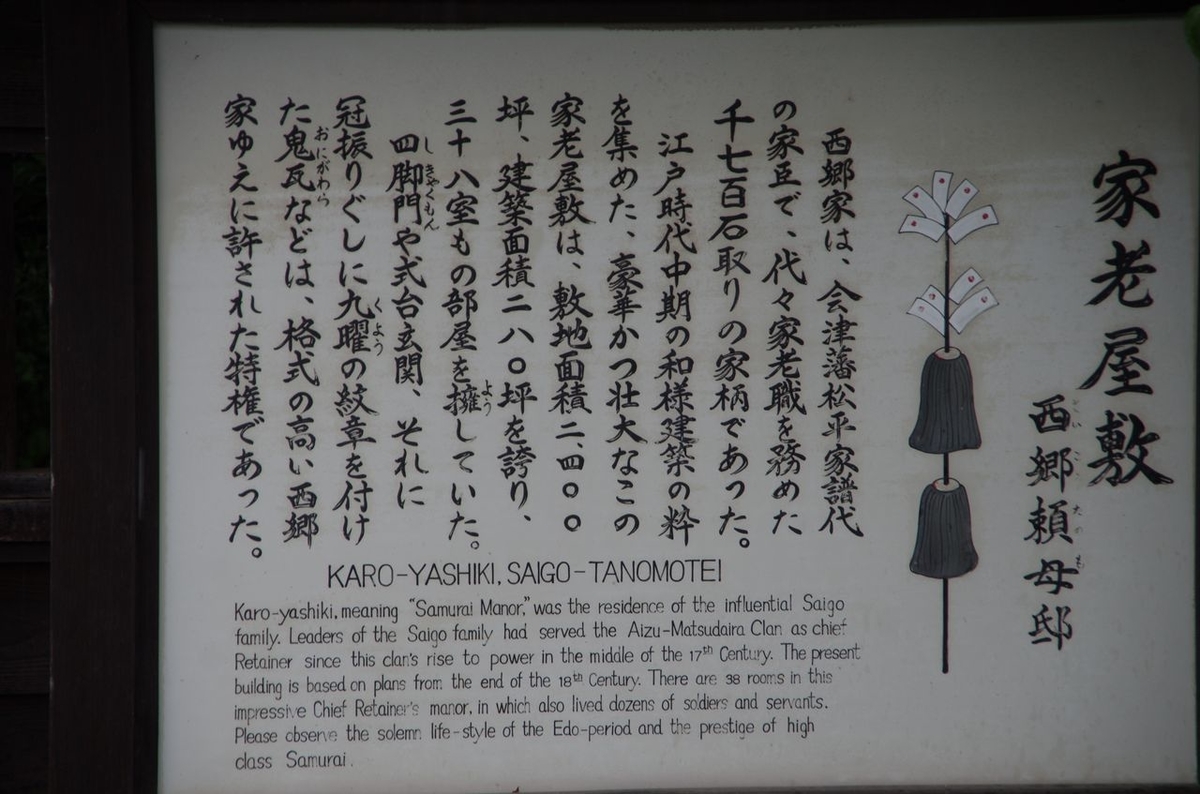 家老屋敷
西郷頼母邸
西郷家は、会津藩松平家譜代
の家臣で、代々家老職を務めた
千七百石取りの家柄であった。
江戸時代中期の和様建築の粋
を集めた、豪華かつ壮大なこの
家老屋敷は、敷地面積二、四〇〇
坪、建築面積二八〇坪を誇り、
三十八室もの部屋を擁していた。
四脚門や式台玄関、それに
冠振りぐしに九曜の紋章を付け
た鬼瓦などは、格式の高い西郷
家ゆえに許された特権であった。
KARO-YASHIKI, SAIGO-TANOMOTEI
Karo-yashiki, meaning "Samurai Manor," was the residence of the influential Saigo
family. Leaders of the Saigo family had served the Aizu-Matsudaira Clan as chief
Retainer since this clan's rise to power in the middle of the 17th Century. The present
building is based on plans from the end of the 18th Century. There are 38 rooms in this
impressive Chief Retainer's manor, in which also lived dozens of soldiers and servants.
Please observe the solemn life-style of the Edo-period and the prestige of high
class Samurai.